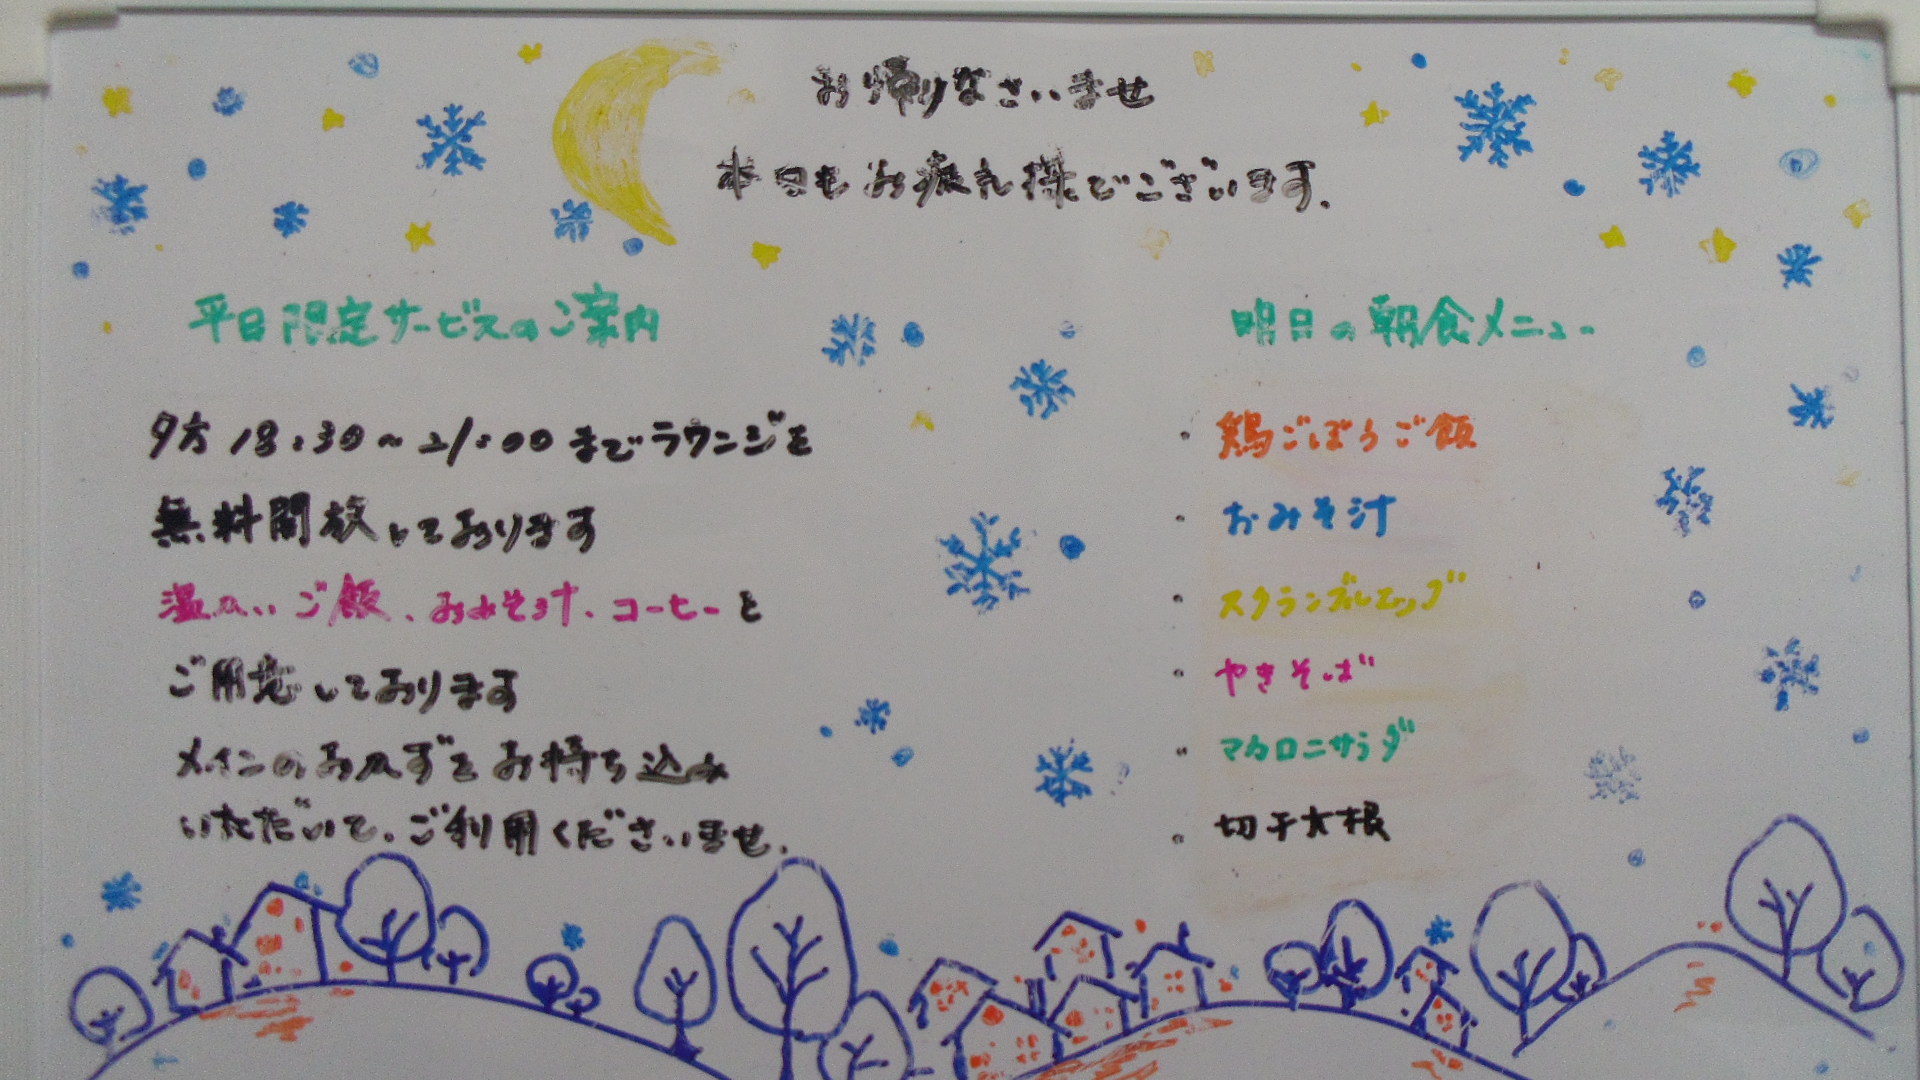 お帰りなさいませ
本日もお疲れ様でございます.
平日限定サービスのご案内
夕方18:30～21:00までラウンジを
無料開放しております
温かいご飯、おみそ汁、コーヒーを
ご用意しております
メインのおかずをお持ち込み
いただいて、ご利用くださいませ.
明日の朝食メニュー
・鶏ごぼうご飯
・おみそ汁
・スクランブルエッグ
・やきそば
・マカロニサラダ
・切干大根